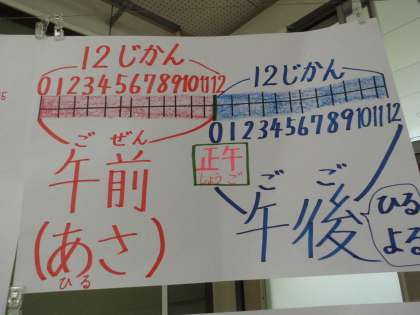 12じかん
0123456789101112
ごぜん
午前
(あさ)
ひる
12じかん
0123456789101112
正午
しょうご
ごご
午後
ひる
よる